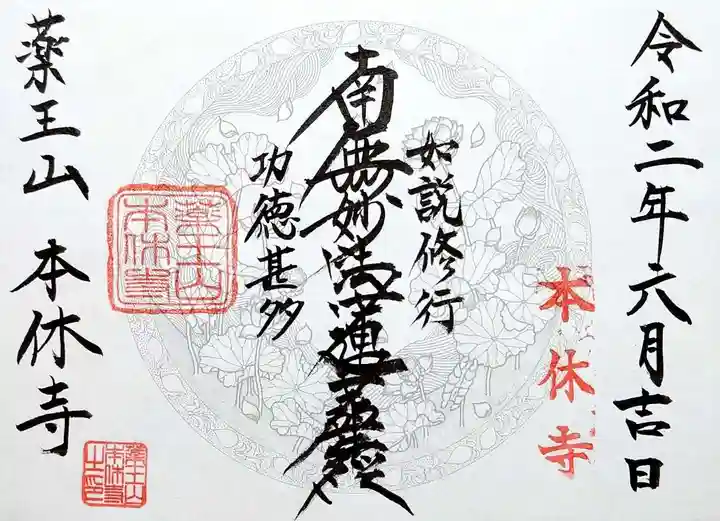 令和二年六月吉日
本休寺
如説修行
南無妙法蓮華経
功徳甚多
薬王山
本休寺
薬王山 本休寺